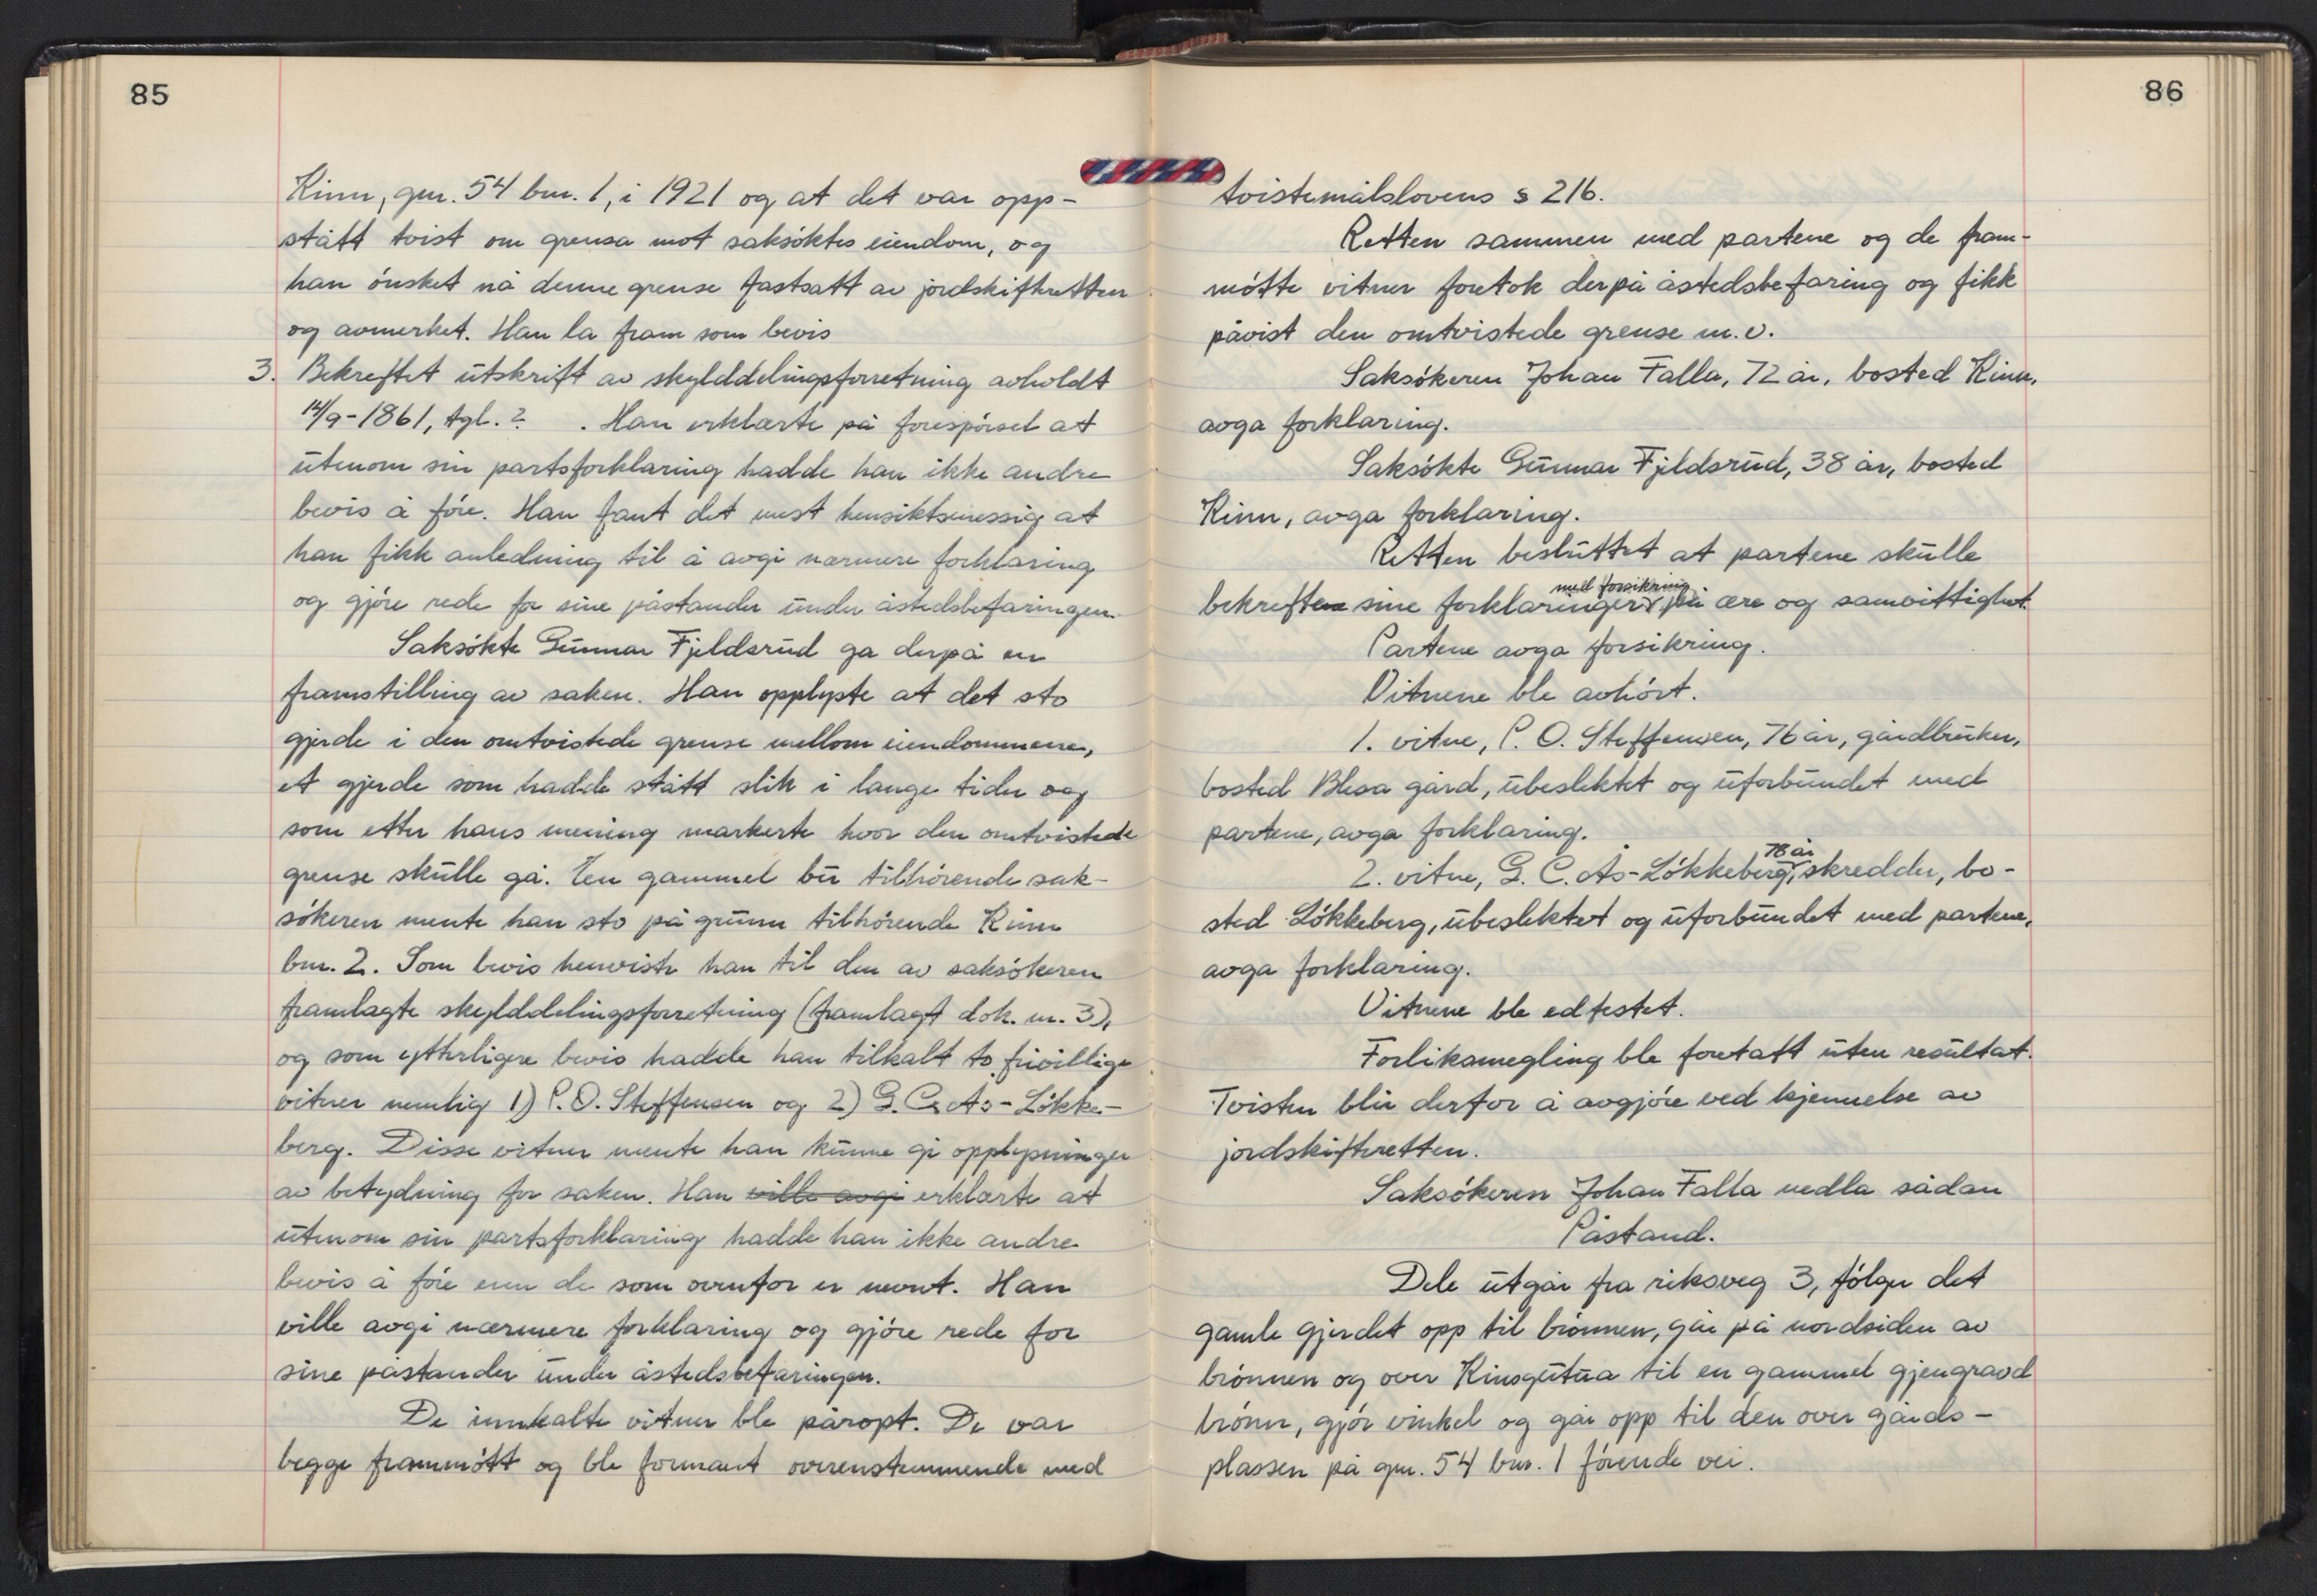 85
Kinn, gnr. 54 bnr. 1, i 1921 og at det var opp-
stått tvist om grensa mot saksøktes eiendom, og
han ønsket nå denne grense fastsatt av jordskifteretten
og avmerket. Han la fram som bevis
3. Bekreftet utskrift av skylddelingsforretning avholdt
14/9-1861, tgl. ? . Han erklærte på forespørsel at
utenom sin partsforklaring hadde han ikke andre
bevis å føre. Han fant det mest hensiktsmessig at
han fikk anledning til å avgi nærmere forklaring
og gjøre rede for sine påstander under åstedsbefaringen.
Saksøkte Gunnar Fjeldsrud ga derpå en
framstilling av saken. Han opplyste at det sto
gjerde i den omtvistede grense mellom eiendommene,
et gjerde som hadde stått slik i lange tider og
som etter hans mening markerte hvor den omtvistede
grense skulle gå. En gammel bu tilhørende sak-
søkeren mente han sto på grunn tilhørende Kinn
bnr. 2. Som bevis henviste han til den av saksøkeren
framlagte skylddelingsforretning (framlagt dok. nr. 3),
og som ytterligere bevis hadde han tilkalt to frivillige
vitner nemlig 1) P. O. Steffensen og 2) G. C. Ås-Løkke-
berg. Disse vitner mente han kunne gi opplysninger
av betydning for saken. Han ville avgi erklærte at
utenom sin partsforklaring hadde han ikke andre
bevis å føre enn de som ovenfor er nevnt. Han
ville avgi nærmere forklaring og gjøre rede for
sine påstander under åstedsbefaringen.
De innkalte vitner ble påropt. De var
begge frammøtt og ble formant overenstemmende med
86
tvistemålslovens § 216.
Retten sammen med partene og de fram-
møtte vitner foretok derpå åstedsbefaring og fikk
påvist den omtvistede grense m.v.
Saksøkeren Johan Falla, 72 år, bosted Kinn,
avga forklaring.
Saksøkte Gunnar Fjeldsrud, 38 år, bosted
Kinn, avga forklaring.
Retten besluttet at partene skulle
med forsikring
bekrefte sine forklaringer på ære og samvittighet.
Partene avga forsikring.
Vitnene ble avhørt.
1. vitne, P. O. Steffensen, 76 år, gårdbruker,
bosted Blesa gård, ubeslektet og uforbundet med
partene, avga forklaring.
78 år
2. vitne, G. C. Ås-Løkkeberg, skredder, bo-
sted Løkkeberg, ubeslektet og uforbundet med partene,
avga forklaring.
Vitnene ble edfestet.
Forliksmegling ble foretatt uten resultat.
Tvisten blir derfor å avgjøre ved kjennelse av
jordskifteretten.
Saksøkeren Johan Falla nedla sådan
Påstand.
Dele utgår fra riksveg 3, følger det
gamle gjerdet opp til brønnen, går på nordsiden av
brønnen og over Kinsgutua til en gammel gjengravd
brønn, gjør vinkel og går opp til den over gårds-
plassen på gnr. 54 bnr. 1 førende vei.